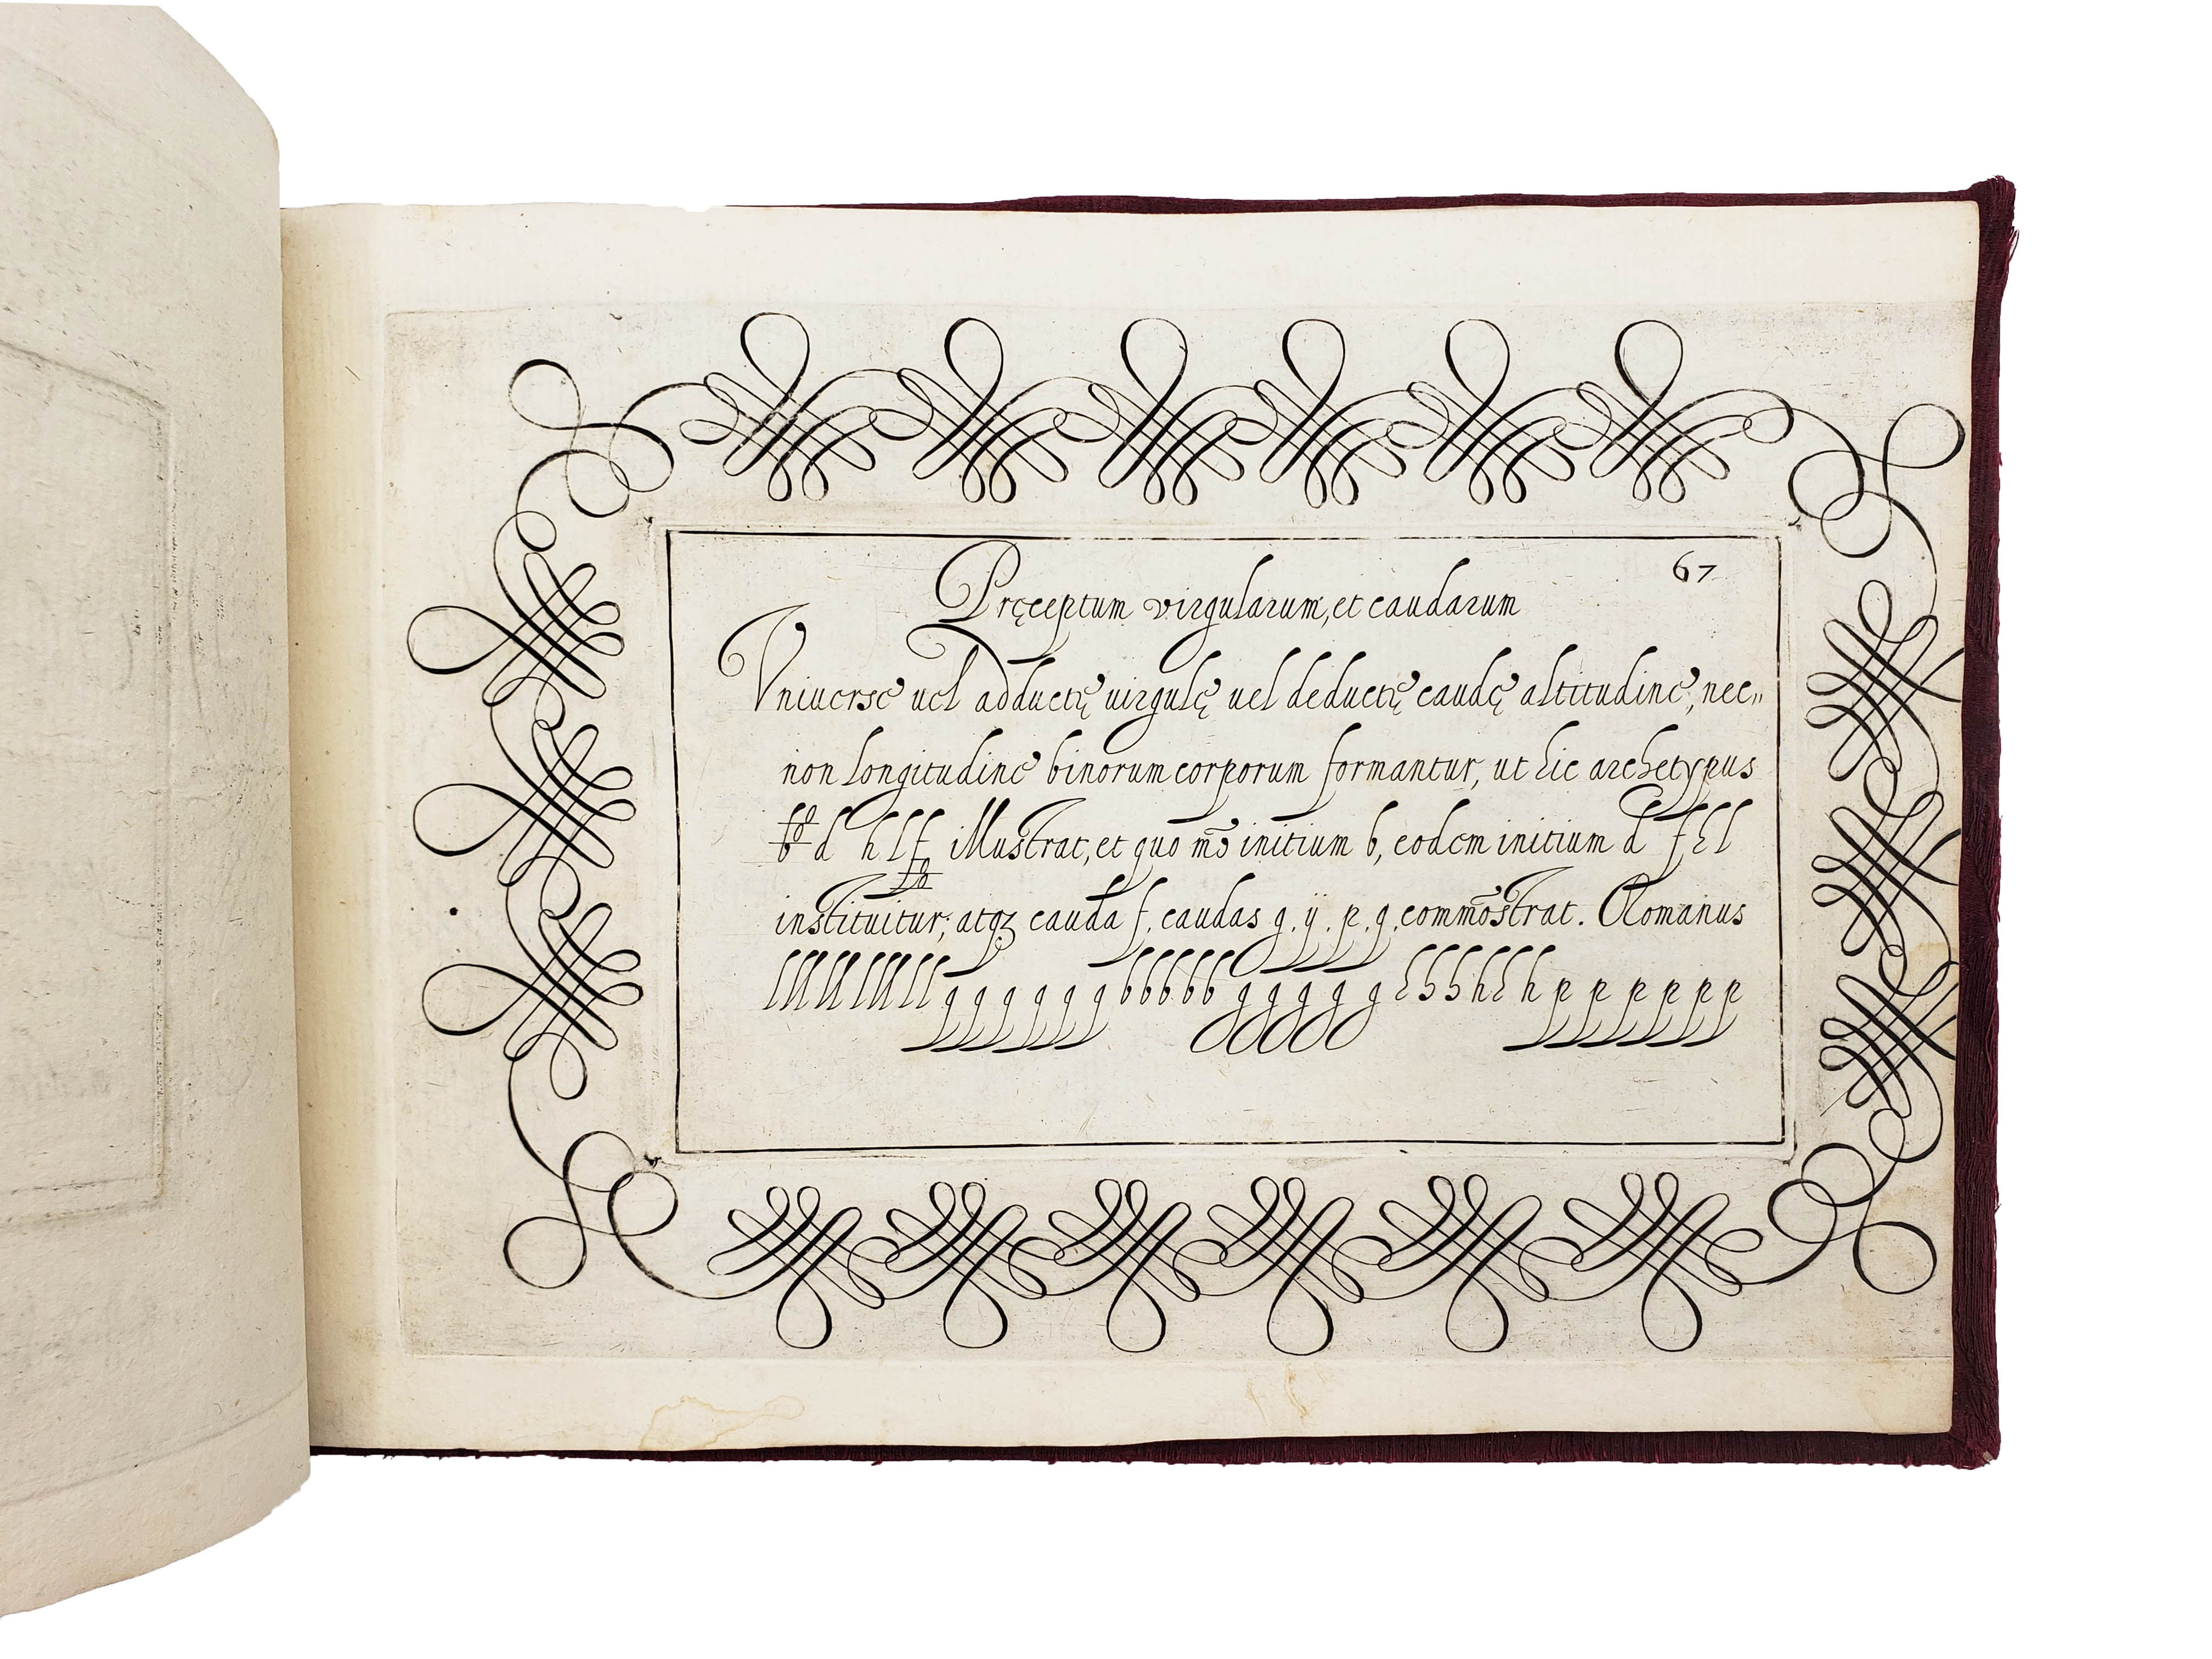 67
Pręceptum virgularum, et caudarum
Vniuerse uel adductę uirgulę uel deductę caudę altitudine, nec„
non longitudine binorum corporum formantur, ut hic archetypus
b d h l f illustrat, et quo mõ initium b, eodem initium d f h l
instituitur, atqꝫ cauda f, caudas g. ij. p. q. commõstrat. Romanus
lllllllllll q q q q q q b b b b b g g g g g h h h h h h p p p p p p